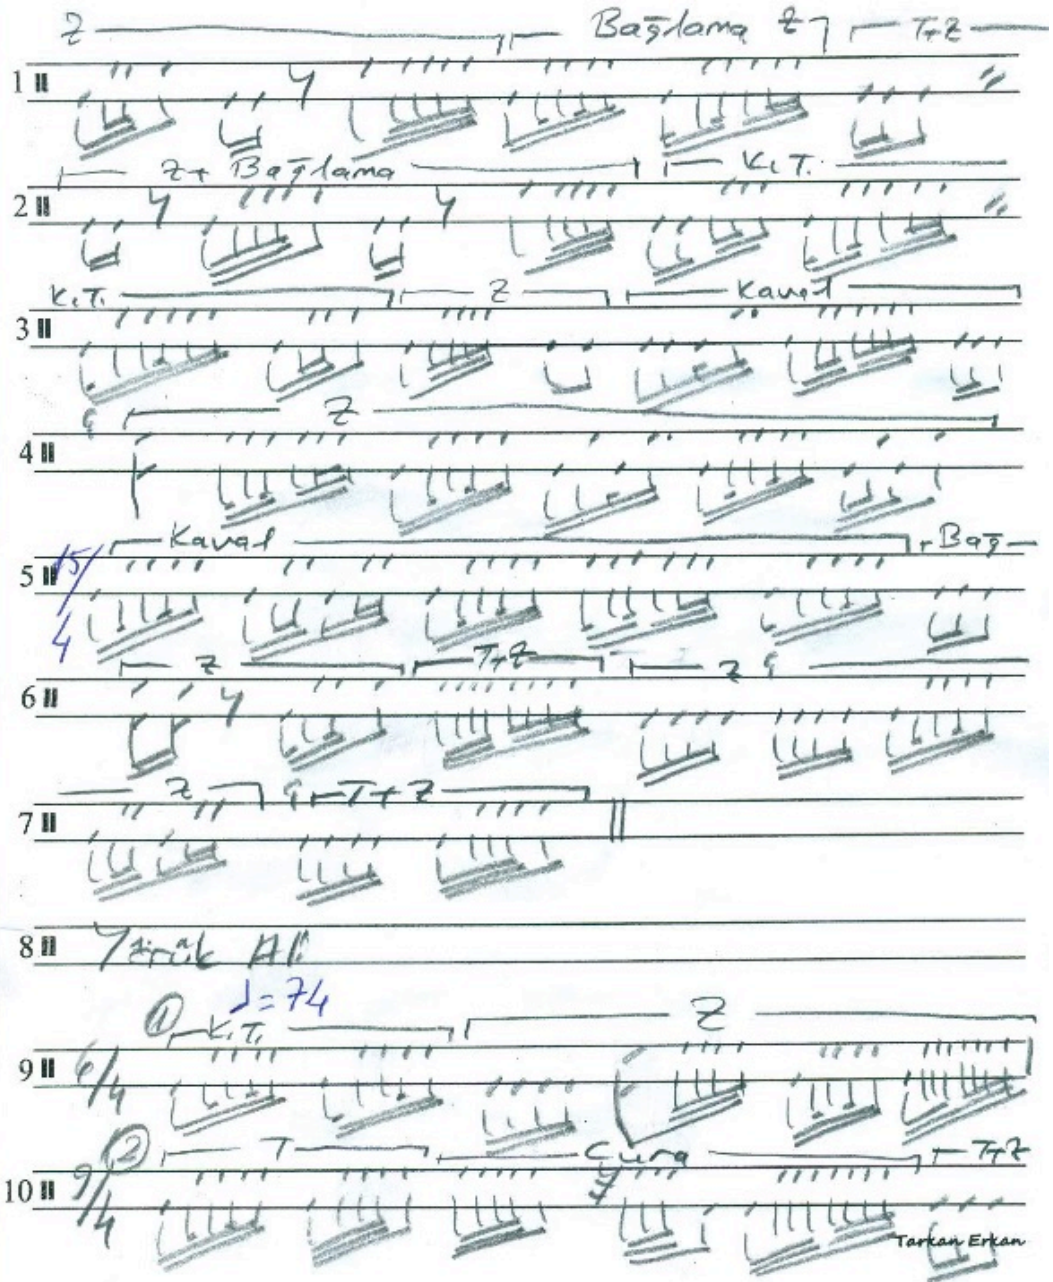 Z Bağlama Z T+Z
1
Z+ Bağlama K.T.
2
K.T. Z Kaval
3
Z
4
Kaval Bağ
5 15/4
Z T+Z Z
6
Z T+Z
7
8 Yörük Ali
♩=74
① K.T. Z
9 6/4
② T Cura T+Z
10 9/4
Tarkan Erkan